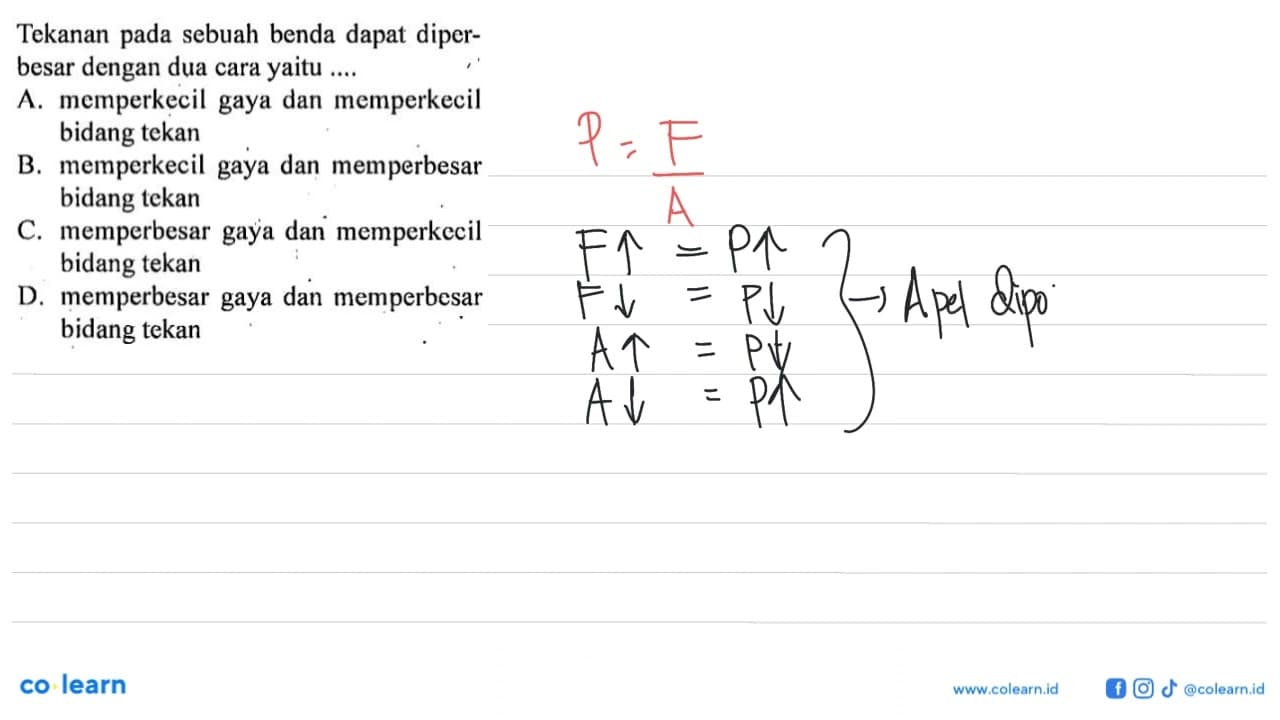 Tekanan pada sebuah benda dapat diper-
besar dengan dua cara yaitu ....
A. memperkecil gaya dan memperkecil
bidang tekan
B. memperkecil gaya dan memperbesar
bidang tekan
C. memperbesar gaya dan memperkecil
bidang tekan
D. memperbesar gaya dan memperbesar
bidang tekan
P = F
A
F↑ = P↑
F↓ = P↓
A↑ = P↓
A↓ = P↑
→ Apel dipo
co learn
www.colearn.id
@colearn.id